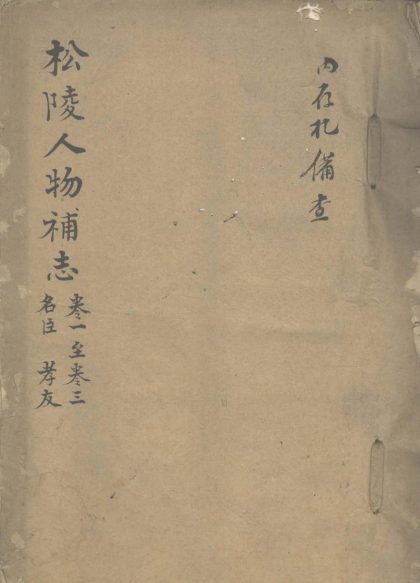 內存札備查
松陵人物補志
卷一至卷三
名臣 孝友